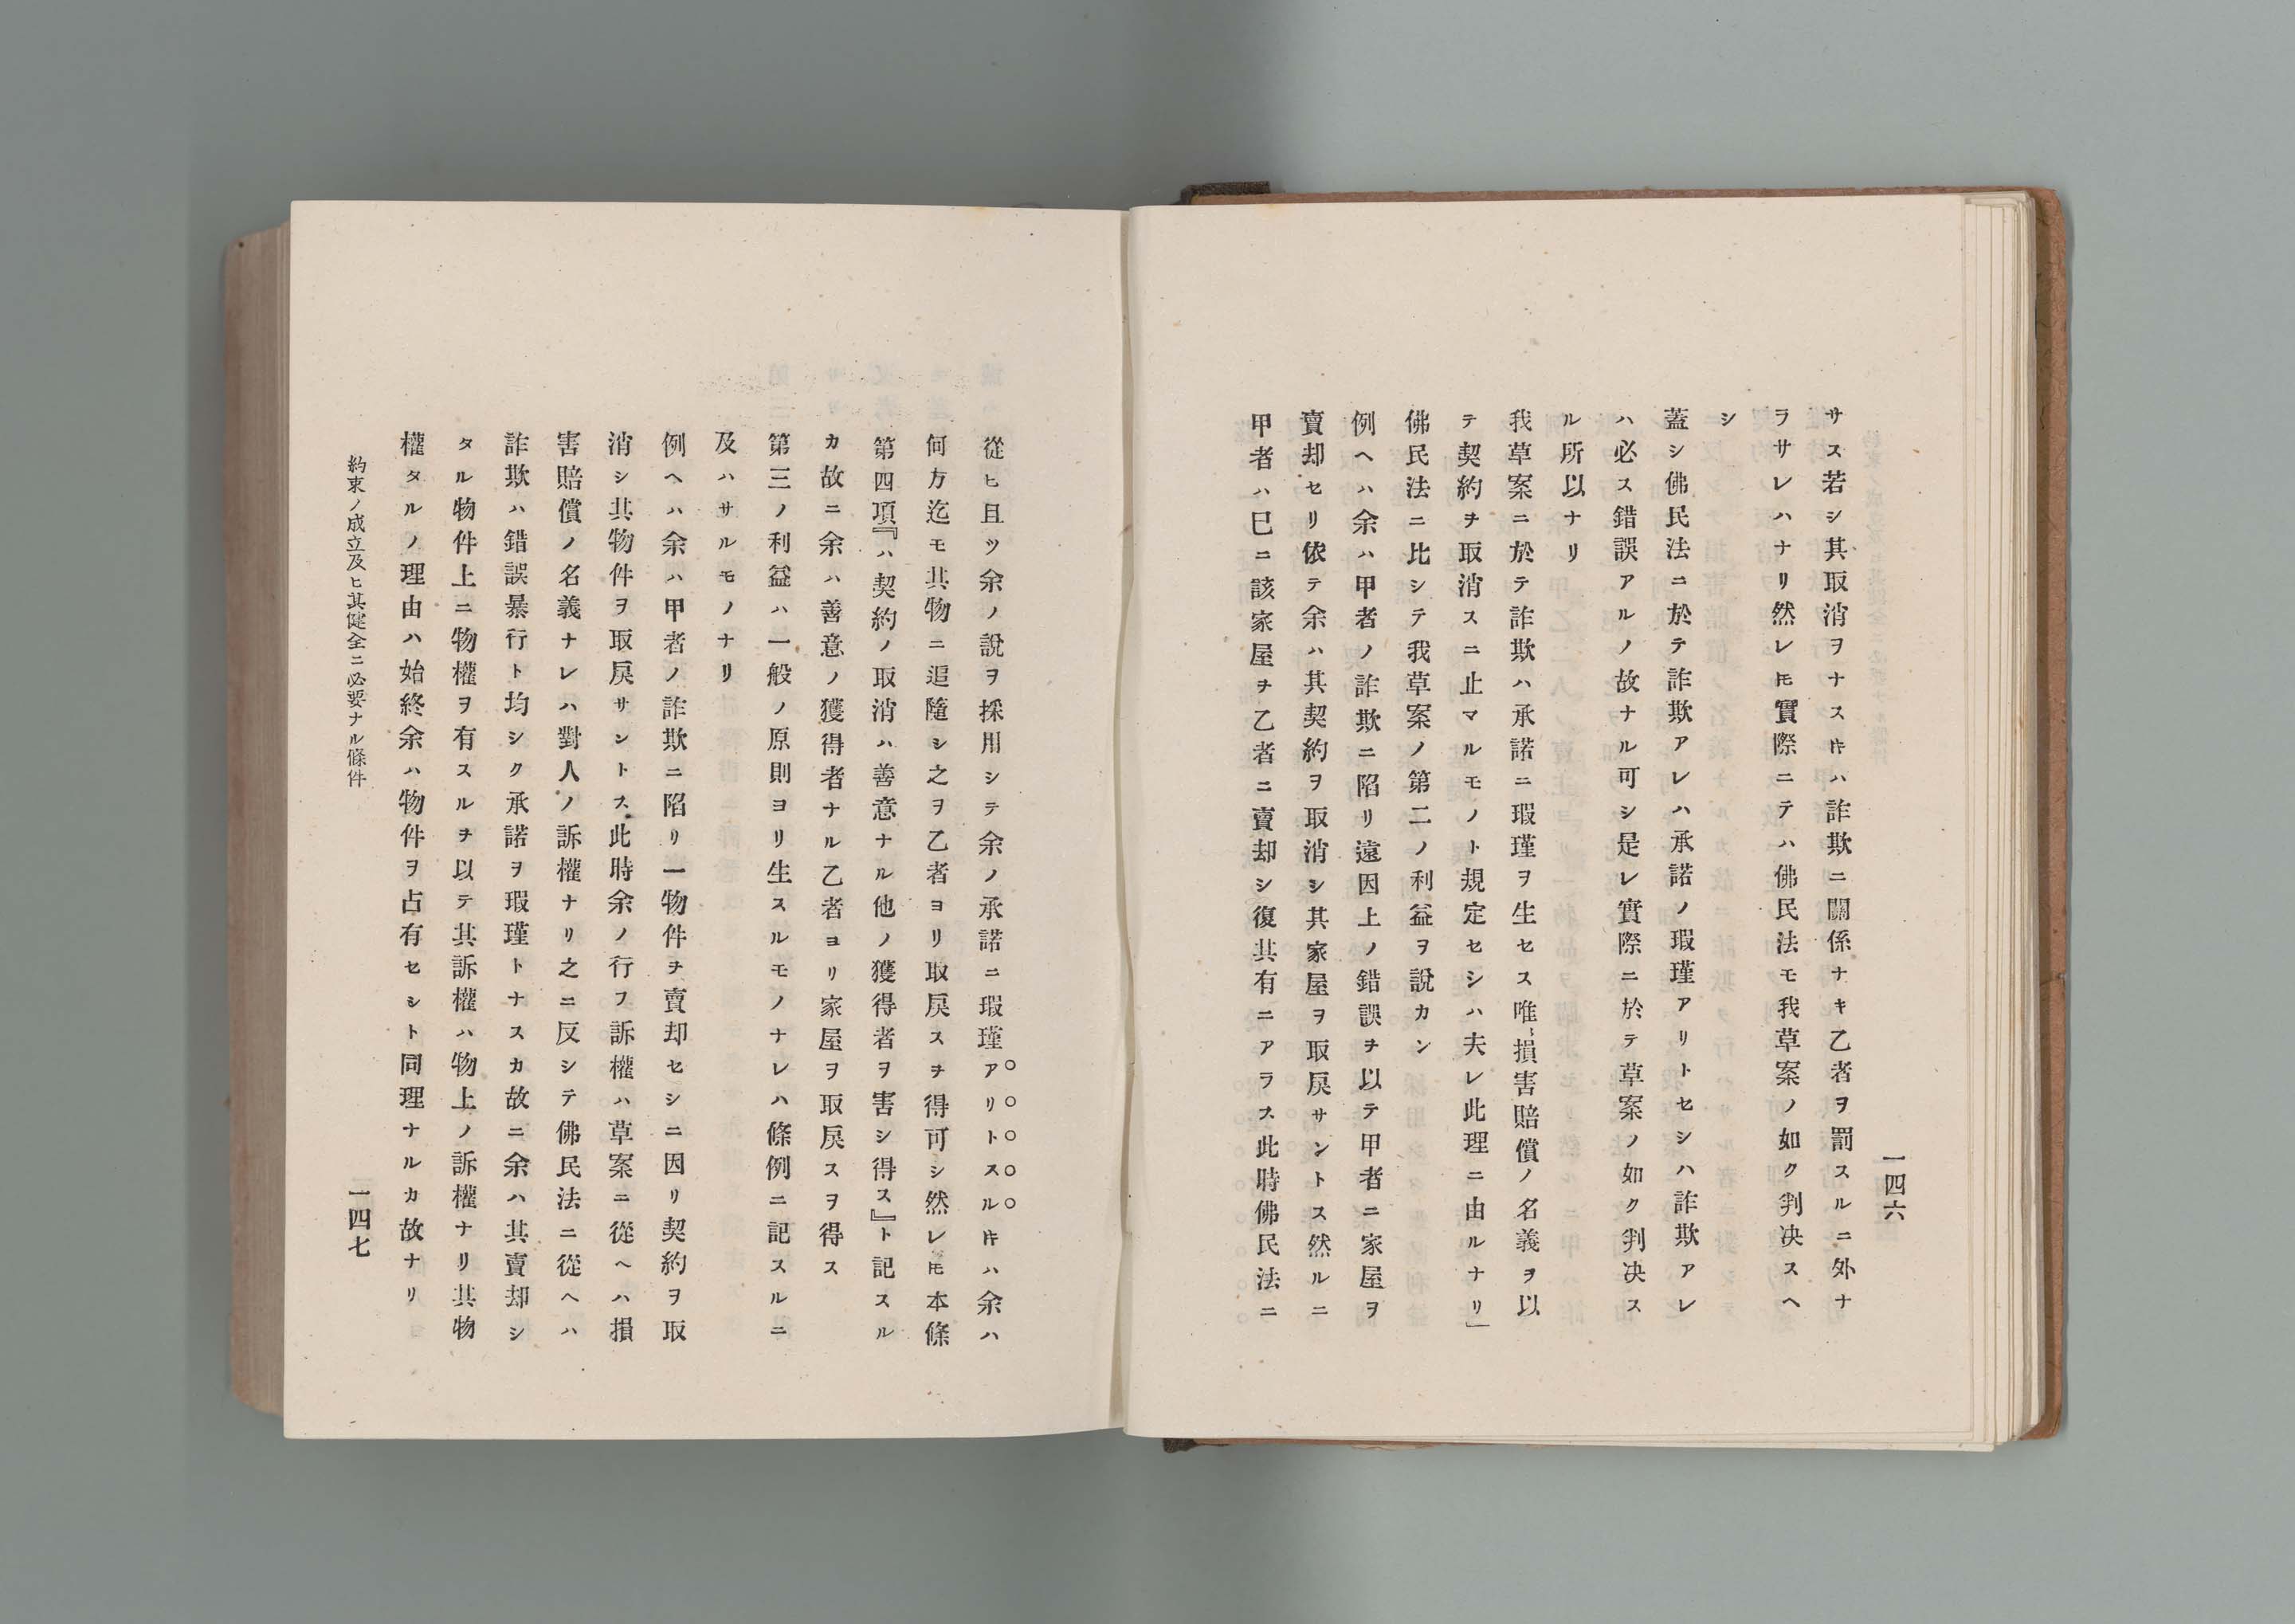 一四六
サス若シ其取消ヲナス𪜈ハ詐欺ニ關係ナキ乙者ヲ罰スルニ外ナ
ラサレハナリ然レ𪜈實際ニテハ佛民法モ我草案ノ如ク判决スヘ
シ
蓋シ佛民法ニ於テ詐欺アレハ承諾ノ瑕瑾アリトセシハ詐欺アレ
ハ必ス錯誤アルノ故ナル可シ是レ實際ニ於テ草案ノ如ク判决ス
ル所以ナリ
我草案ニ於テ詐欺ハ承諾ニ瑕瑾ヲ生セス唯損害賠償ノ名義ヲ以
テ契約ヲ取消スニ止マルモノト規定セシハ夫レ此理ニ由ルナリ」
佛民法ニ比シテ我草案ノ第二ノ利益ヲ說カン
例ヘハ余ハ甲者ノ詐欺ニ陷リ遠因上ノ錯誤ヲ以テ甲者ニ家屋ヲ
賣却セリ依テ余ハ其契約ヲ取消シ其家屋ヲ取戾サントス然ルニ
甲者ハ已ニ該家屋ヲ乙者ニ賣却シ復其有ニアラス此時佛民法ニ
從ヒ且ツ余ノ說ヲ採用シテ余ノ承諾ニ瑕瑾アリトスル𪜈ハ余ハ
何方迄モ其物ニ追隨シ之ヲ乙者ヨリ取戾スヲ得可シ然レ𪜈本條
第四項『ハ契約ノ取消ハ善意ナル他ノ獲得者ヲ害シ得ス』ト記スル
カ故ニ余ハ善意ノ獲得者ナル乙者ヨリ家屋ヲ取戾スヲ得ス
第三ノ利益ハ一般ノ原則ヨリ生スルモノナレハ條例ニ記スルニ
及ハサルモノナリ
例ヘハ余ハ甲者ノ詐欺ニ陷リ一物件ヲ賣却セシニ因リ契約ヲ取
消シ其物件ヲ取戾サントス此時余ノ行フ訴權ハ草案ニ從ヘハ損
害賠償ノ名義ナレハ對人ノ訴權ナリ之ニ反シテ佛民法ニ從ヘハ
詐欺ハ錯誤暴行ト均シク承諾ヲ瑕瑾トナスカ故ニ余ハ其賣却シ
タル物件上ニ物權ヲ有スルヲ以テ其訴權ハ物上ノ訴權ナリ其物
權タルノ理由ハ始終余ハ物件ヲ占有セシト同理ナルカ故ナリ
約束ノ成立及ヒ其健全ニ必要ナル條件
一四七